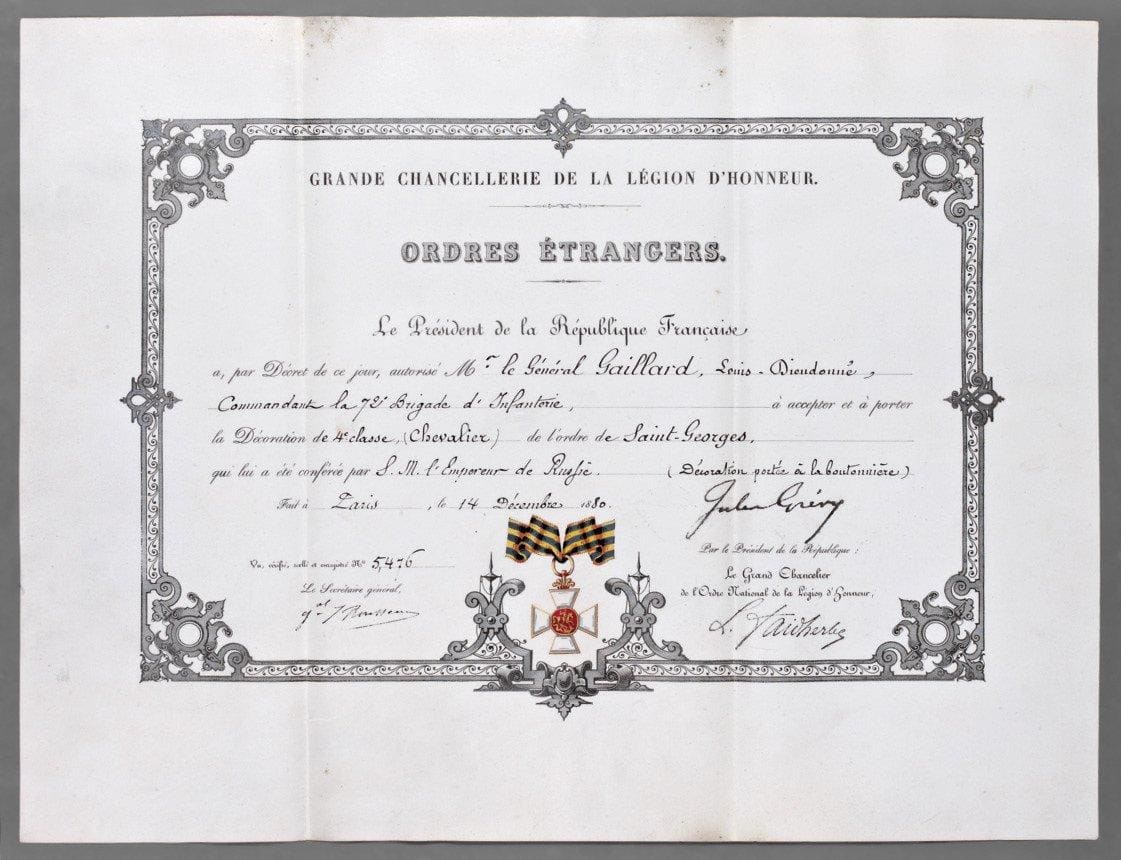 GRANDE CHANCELLERIE DE LA LÉGION D'HONNEUR.
ORDRES ÉTRANGERS.
Le Président de la République Française
a, par Décret de ce jour, autorisé Mr le Général Gaillard, Louis-Dieudonné,
Commandant la 72e Brigade d'Infanterie, à accepter et à porter
la Décoration de 4e classe, (Chevalier) de l'ordre de Saint-Georges,
qui lui a été conférée par S. M. l'Empereur de Russie. (Décoration portée à la boutonnière)
Fait à Paris, le 14 Décembre 1880.
Jules Grévy
Vu, vérifié, scellé et enregistré No 5,476
Par le Président de la République :
Le Secrétaire général,
Le Grand Chancelier
de l'Ordre National de la Légion d'Honneur,
gal Rousseau
L. Faidherbe